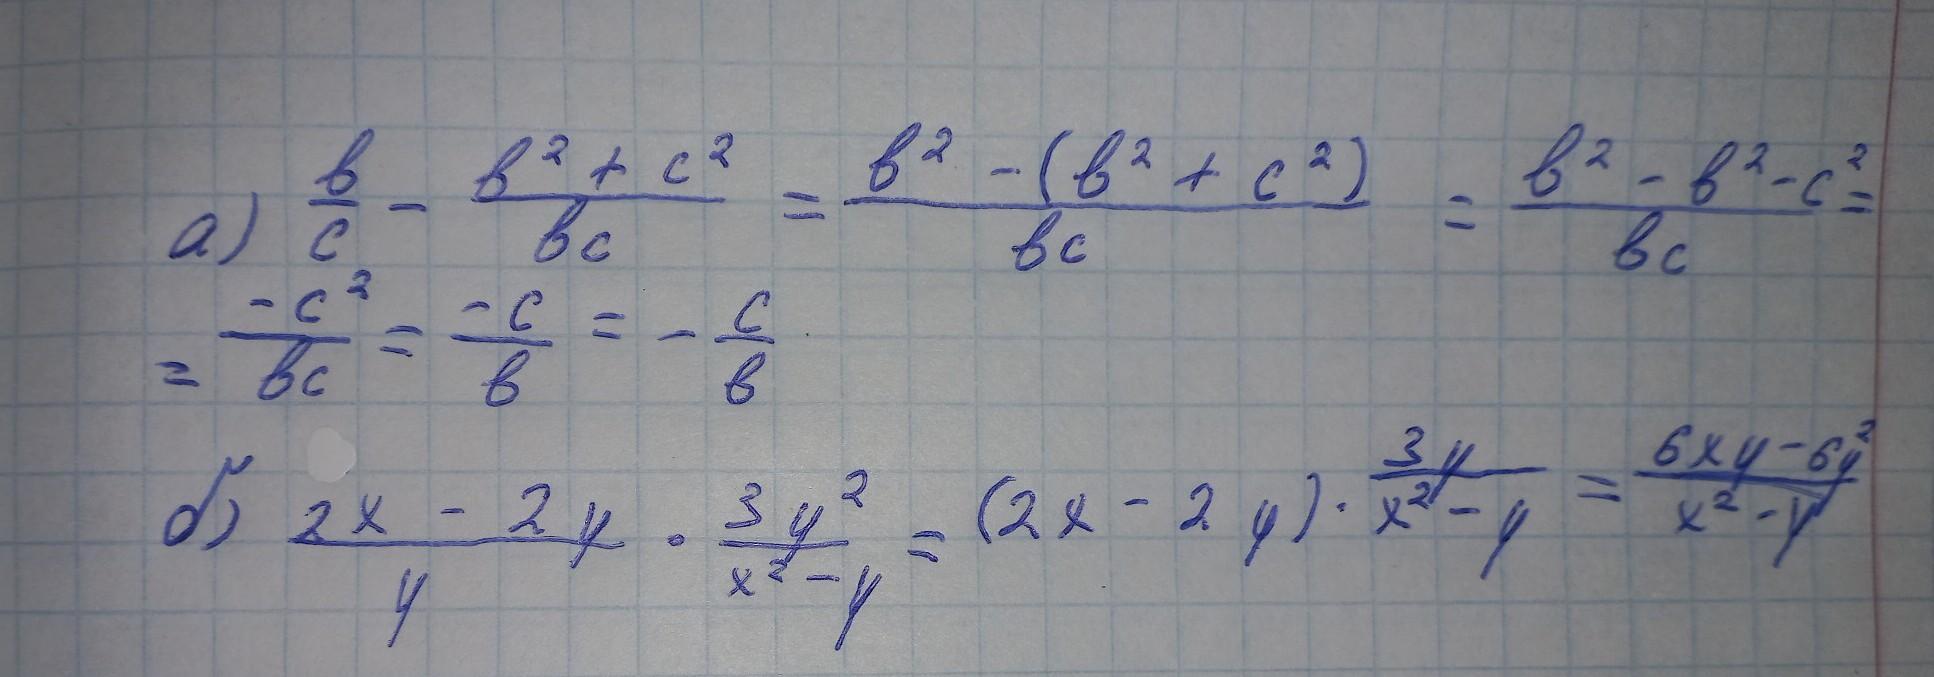 а) в/c - (в² + c²)/вc = (в² - (в² + c²))/вc = (в² - в² - c²)/вc =
= -c²/вc = -c/в = - c/в
б) (2x - 2y)/y · 3y²/(x² - y) = (2x - 2y) · 3y/(x² - y) = (6xy - 6y²)/(x² - y)